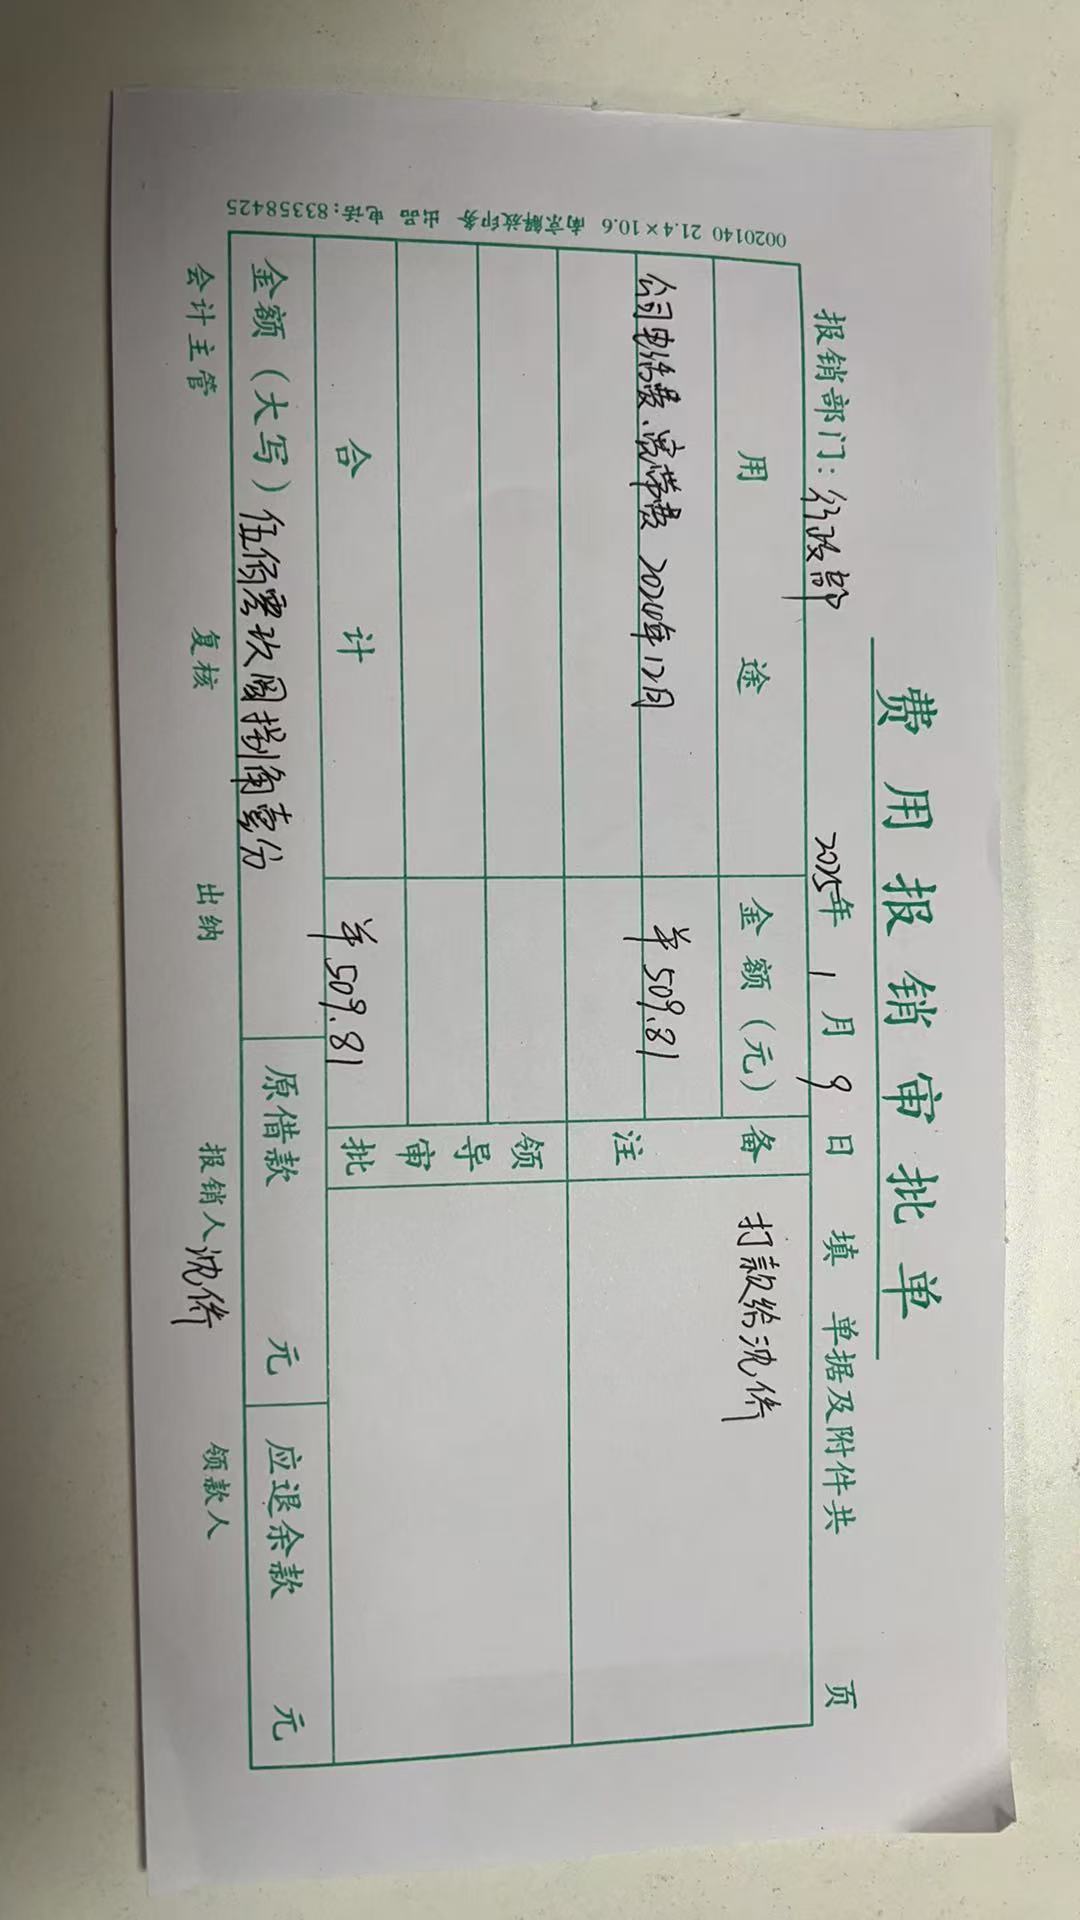 费用报销审批单
报销部门：行政部 2025年1月9日填 单据及附件共 页
用途 金额（元） 备注 打款给沈侨
公司电话费、宽带费 2024年12月 ￥509.81
领导审批
合计 ￥509.81
金额（大写）伍佰零玖圆捌角壹分 原借款 元 应退余款 元
会计主管 复核 出纳 报销人 沈侨 领款人
0020140 21.4×10.6 南京解放印务 出品 电话:83358425